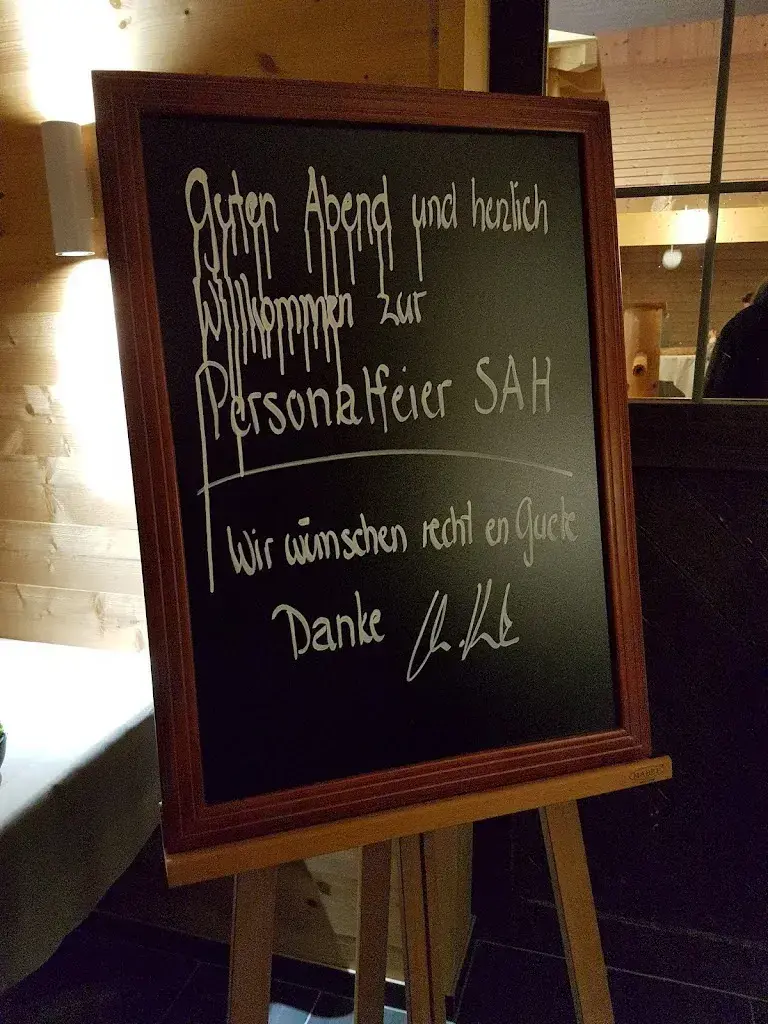 Guten Abend und herzlich
Willkommen zur
Personalfeier SAH
Wir wünschen recht en Guete
Danke